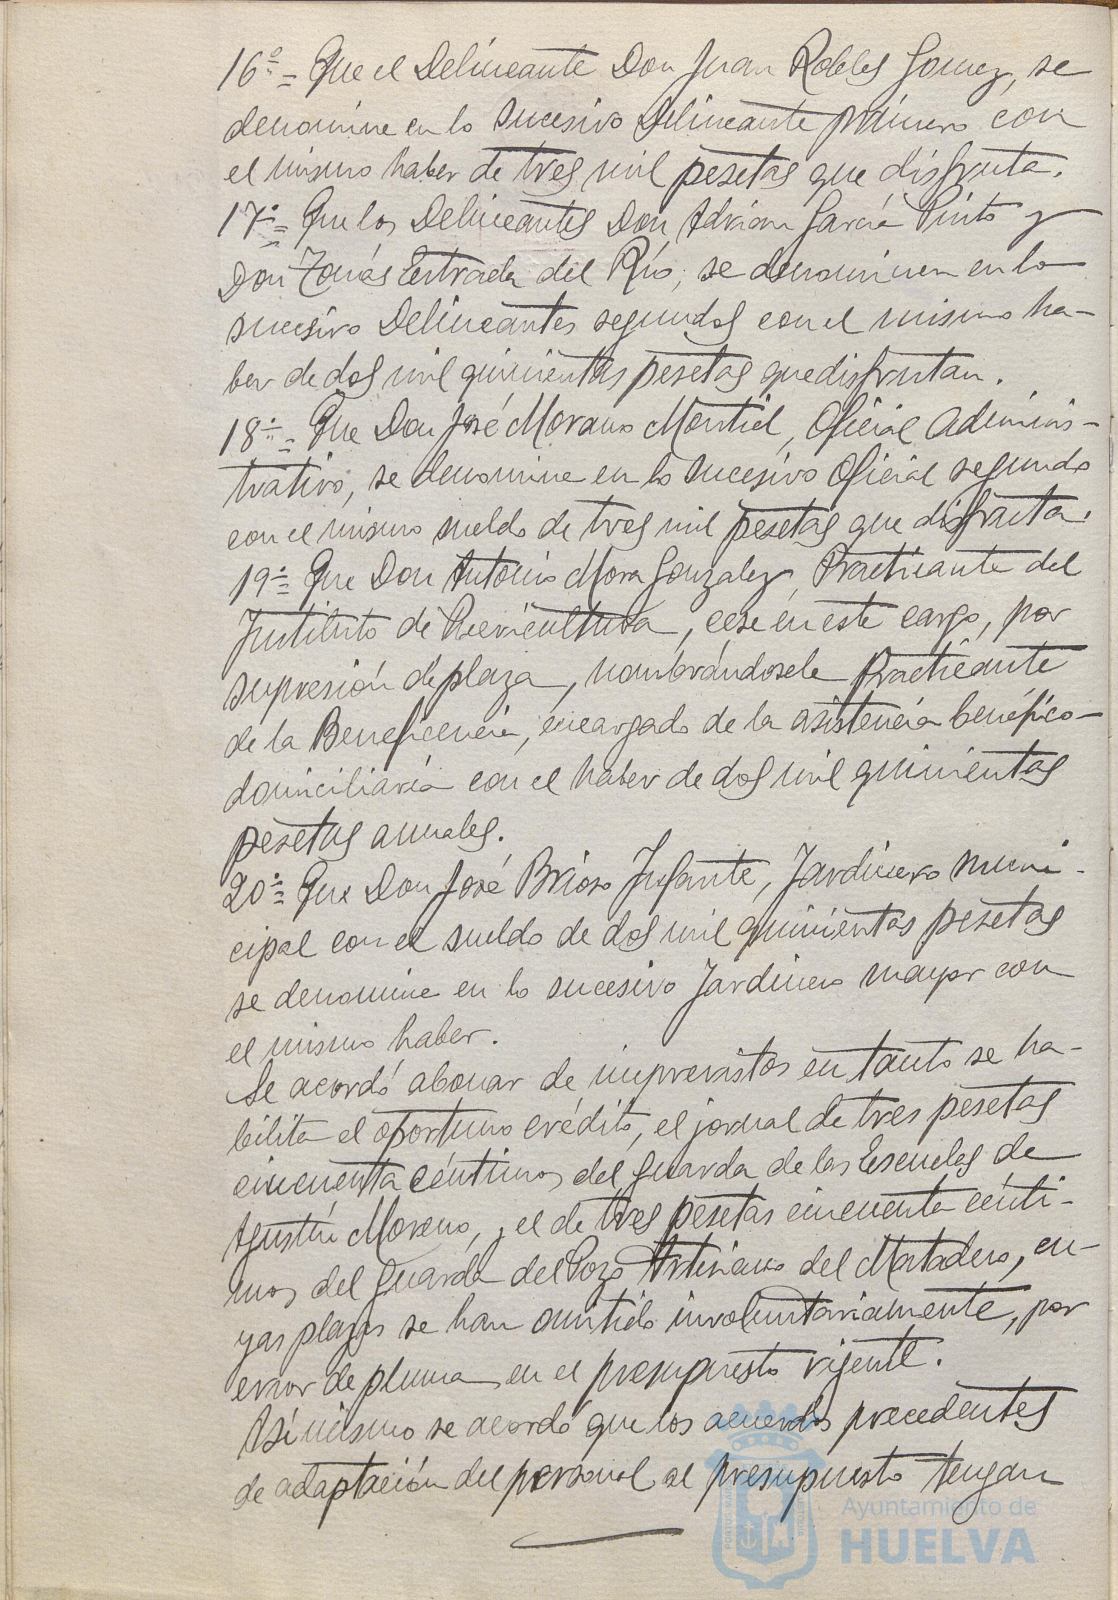 16º.= Que el Delineante Don Juan Robles Gomez, se
denomine en lo sucesivo Delineante primero con
el mismo haber de tres mil pesetas que disfruta.
17º.= Que los Delineantes Don Adrian García Pinto y
Don Tomás Estrada del Río, se denominen en lo
sucesivo Delineantes segundos con el mismo ha-
ber de dos mil quinientas pesetas que disfrutan.
18º.= Que Don José Morano Montiel, Oficial Adminis-
trativo, se denomine en lo sucesivo Oficial segundo
con el mismo sueldo de tres mil pesetas que disfruta.
19º.= Que Don Antonio Mora Gonzalez Practicante del
Instituto de Puericultura, cese en este cargo, por
supresión de plaza, nombrándosele Practicante
de la Beneficencia, encargado de la asistencia benéfico-
domiciliaria con el haber de dos mil quinientas
pesetas anuales.
20º.= Que Don José Brioso Infante, Jardinero muni-
cipal con el sueldo de dos mil quinientas pesetas
se denomine en lo sucesivo Jardinero mayor con
el mismo haber.
Se acordó abonar de imprevistos en tanto se ha-
bilita el oportuno crédito, el jornal de tres pesetas
cincuenta céntimos del guarda de las Escuelas de
Agustín Moreno, y el de tres pesetas cincuenta cénti-
mos del guarda del Pozo Artesiano del Matadero, cu-
yas plazas se han omitido involuntariamente, por
error de pluma en el presupuesto vigente.
Asi mismo se acordó que los acuerdos precedentes
de adaptación del personal al presupuesto tengan
Ayuntamiento de
HUELVA